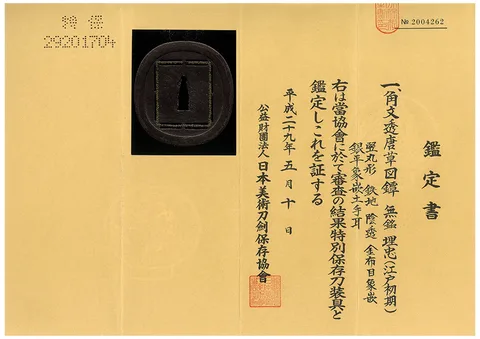 鑑定書
一、角文透唐草図鐔 無銘 埋忠(江戸初期)
竪丸形 鉄地 陰透 金布目象嵌
銀平象嵌 土手耳
右は當協會に於て審査の結果特別保存刀装具と
鑑定しこれを証する
平成二十九年五月十日
公益財團法人 日本美術刀剣保存協會
№ 2004262
特保
29201704